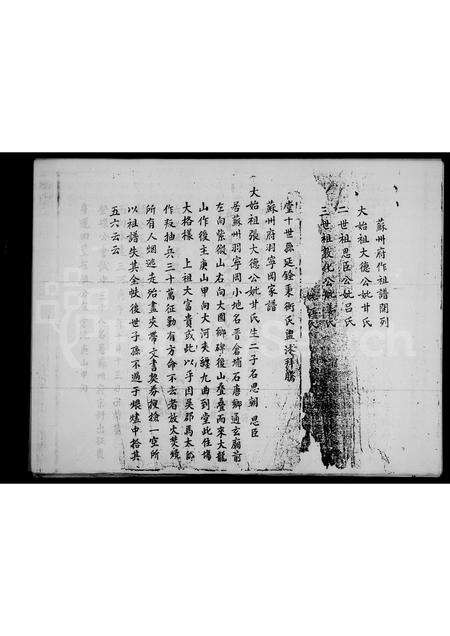 蘇州府作祖譜開列
大始祖大德公妣甘氏
二世祖思臣公妣呂氏
三世祖教化公妣
堂十世孫延銓東衡氏盥沐拜騰
蘇州府羽寧岡家譜
大始祖張大德公妣甘氏生二子名思朝 思臣
居蘇州羽寧岡小地名晋倉埔石唐鄉通玄廟前
左向紫嶺山右向大園鄉碑後山叠叠而來大龍
山作後主庚山甲向大河夾纏九曲到堂此住塲
大格樣 上祖大富貴或此以乎因吳郡馬太師
作叛抽兵三十萬征勦有方命不去者放火焚燒
所有人烟逃走殆盡失帶文書契券搜檢一空所
以祖譜失其全帙後世子孫不過于煨爐中拾其
五六云云